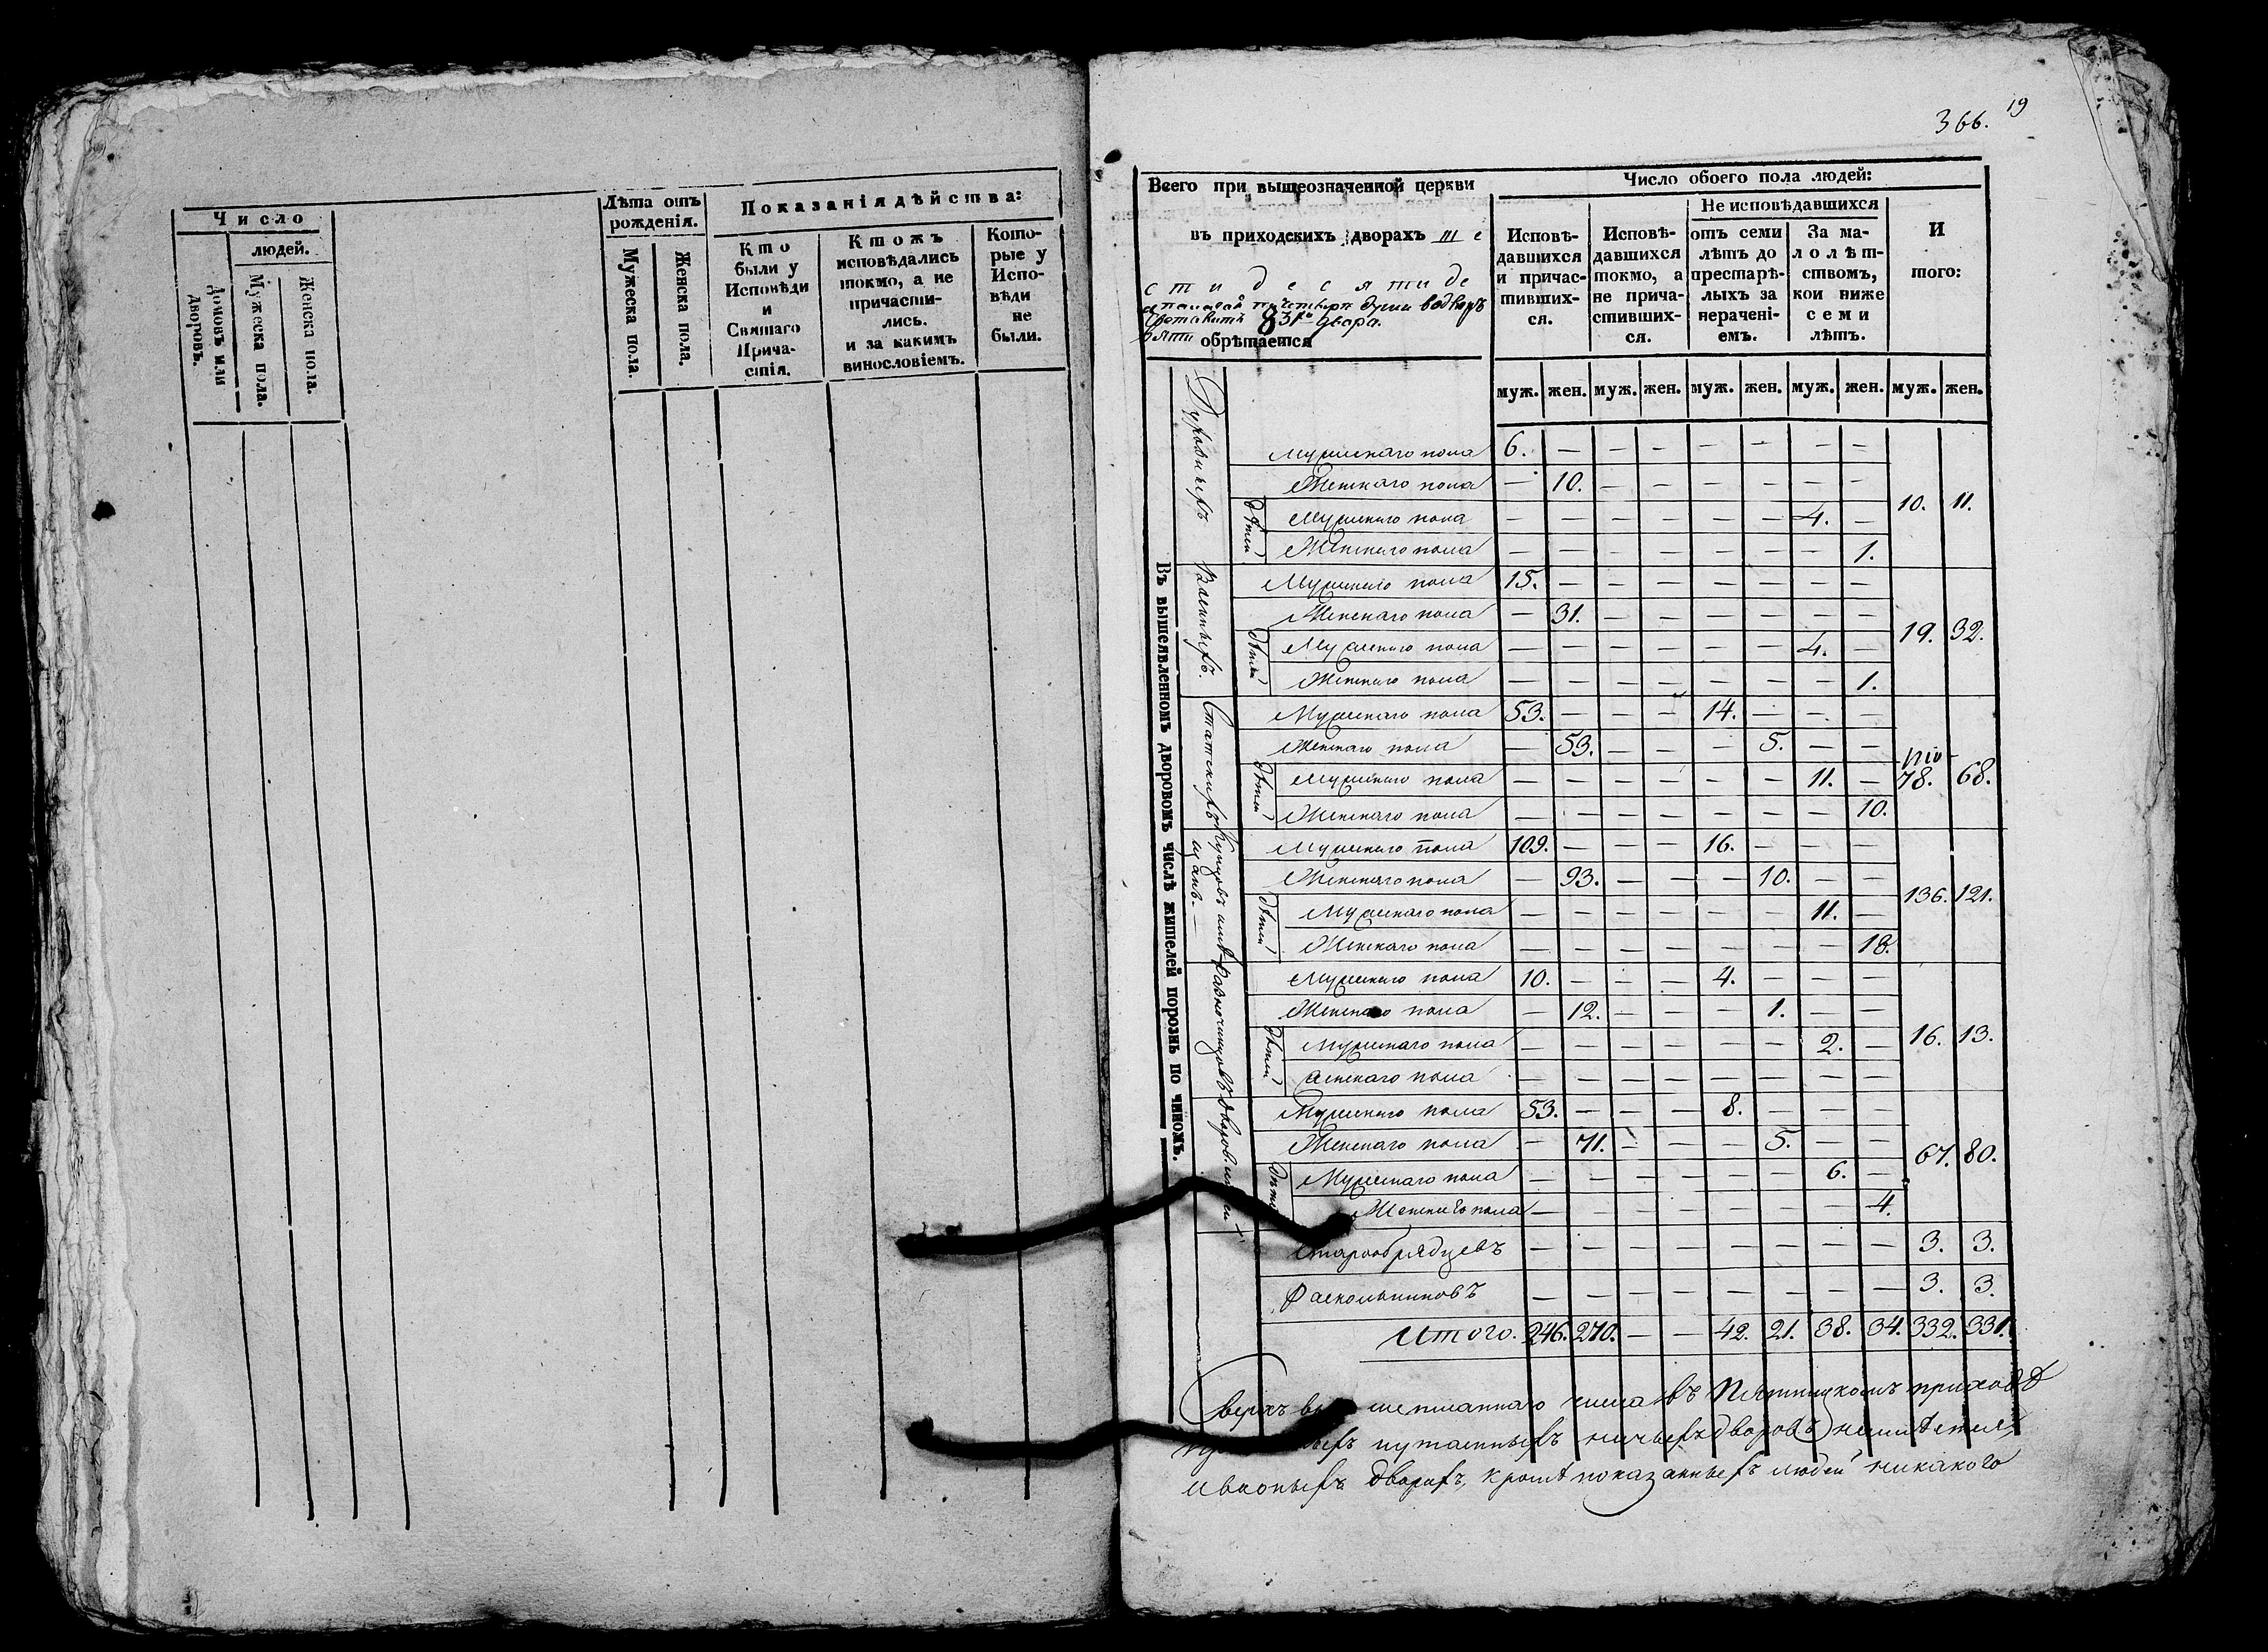 Число
людей.
Домовъ или дворовъ.
Мужеска пола.
Женска пола.
Лѣта отъ рожденія.
Мужеска пола.
Женска пола.
Показанія дѣйства:
Кто были у Исповѣди и Святаго Причастія.
Ктожъ исповѣдались токмо, а не причастились. и за какимъ винословіемъ.
Которые у Исповѣди не были.
366. 19
Всего при вышеозначенной церкви
въ приходскихъ дворахъ ше
стидесяти де
вяти обрѣтается
Число обоего пола людей:
Исповѣдавшихся и причастившихся.
Исповѣдавшихся токмо, а не причастившихся.
Не исповѣдавшихся
отъ семи лѣтъ до престарѣлыхъ за нерачені- емъ.
За малолѣтствомъ, кои ниже семи лѣтъ.
И того:
муж. жен. муж. жен. муж. жен. муж. жен. муж. жен.
Въ вышеявленномъ дворовомъ числѣ жителей порознь по чиномъ.
Духовныхъ
Мужескаго пола 6. — — — — — — —
Женскаго пола — 10. — — — — — — 10. 11.
дѣтей
Мужескаго пола — — — — — — 4. —
Женскаго пола — — — — — — — 1.
Военныхъ.
Мужескаго пола 15. — — — — — — —
Женскаго пола — 31. — — — — — — 19. 32.
дѣтей
Мужескаго пола — — — — — — 4. —
Женскаго пола — — — — — — — 1.
Статскихъ
Мужескаго пола 53. — — — 14. — — —
Женскаго пола — 53. — — — 5. — —
дѣтей
Мужескаго пола — — — — — — 11. — 78. 68.
Женскаго пола — — — — — — — 10.
Купцовъ и мѣщанъ. —
Мужескаго пола 109. — — — 16. — — —
Женскаго пола — 93. — — — 10. — — 136. 121.
дѣтей
Мужескаго пола — — — — — — 11. —
Женскаго пола — — — — — — — 18.
Разночинцовъ
Мужескаго пола 10. — — — 4. — — —
Женскаго пола — 12. — — — 1. — —
дѣтей
Мужескаго пола — — — — — — 2. — 16. 13.
Женскаго пола — — — — — — — —
Дворов. людей
Мужескаго пола 53. — — — 8. — — —
Женскаго пола — 71. — — — 5. — — 67. 80.
дѣтей
Мужескаго пола — — — — — — 6. —
Женскаго пола — — — — — — — 4.
Старообрядцевъ — — — — — — — — 3. 3.
Раскольниковъ — — — — — — — — 3. 3.
Итого. 246. 270. — — 42. 21. 38. 34. 332. 331.
Сверхъ числа въ Пятницкомъ приходѣ
утаенныхъ ничьихъ дворовъ
дворахъ, кромѣ показанныхъ людей никакого